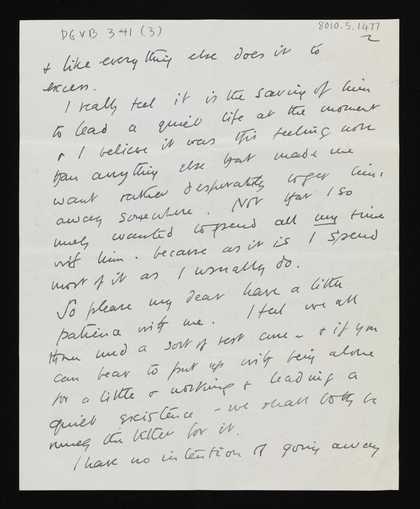 DGVB 341 (3)
8010.5.1477
2
& like everything else does it to
excess.
I really feel it is the saving of him
to lead a quiet life at the moment
& I believe it was this feeling more
than anything else that made me
want rather desperately to get him
away somewhere. Not that I so
much wanted to spend all my time
with him. because as it is I spend
most of it as I usually do.
So please my dear have a little
patience with me. I feel we all
three need a sort of rest cure – & if you
can bear to put up with being alone
for a little & working & leading a
quiet existence – we shall both be
much the better for it.
I have no intention of going away